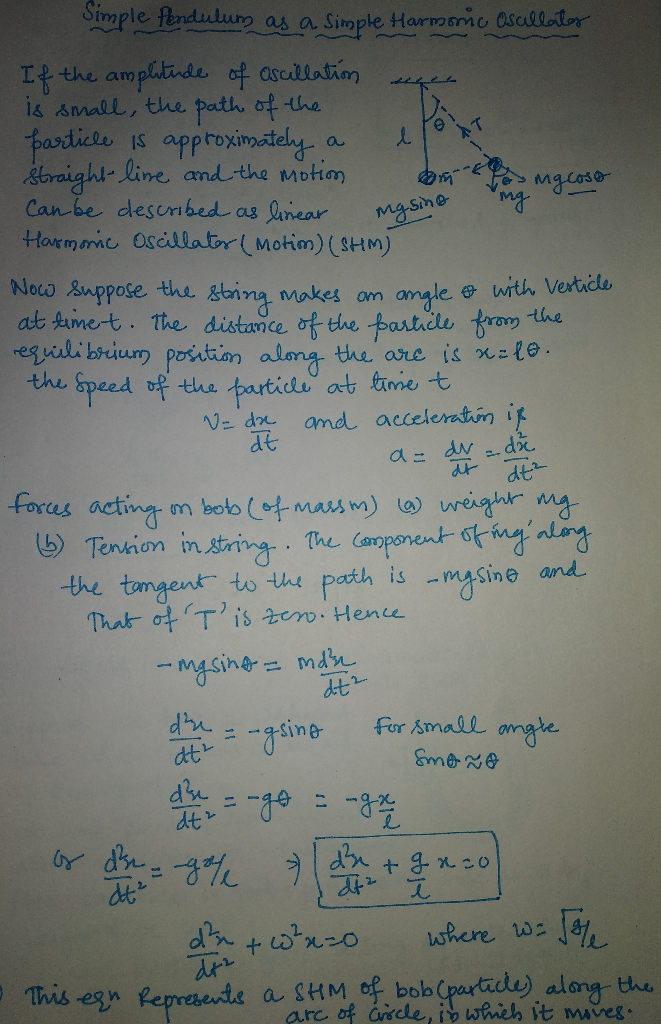 Simple Pendulum as a Simple Harmonic Oscillator
If the amplitude of oscillation
is small, the path of the
particle is approximately a
straight line and the motion
Can be described as linear
Harmonic Oscillator (Motion) (SHM)
θ
T
l
m
θ
mg cosθ
mg
mgsinθ
Now suppose the string makes an angle θ with Verticle
at time t. The distance of the particle from the
equilibrium position along the arc is x=lθ.
the speed of the particle at time t
V = dx/dt and acceleration is
a = dv/dt = d²x/dt²
Forces acting on bob (of mass m) (a) weight mg
(b) Tension in string. The component of 'mg' along
the tangent to the path is -mgsinθ and
That of 'T' is zero. Hence
-mgsinθ = md²x/dt²
d²x/dt² = -gsinθ For small angle
Sinθ ≈ θ
d²x/dt² = -gθ = -g x/l
or d²x/dt² = -gx/l ⇒ d²x/dt² + g/l x = 0
d²x/dt² + ω²x=0 where ω = √g/l
This eqn Represents a SHM of bob (particle) along the
arc of circle, in which it moves.